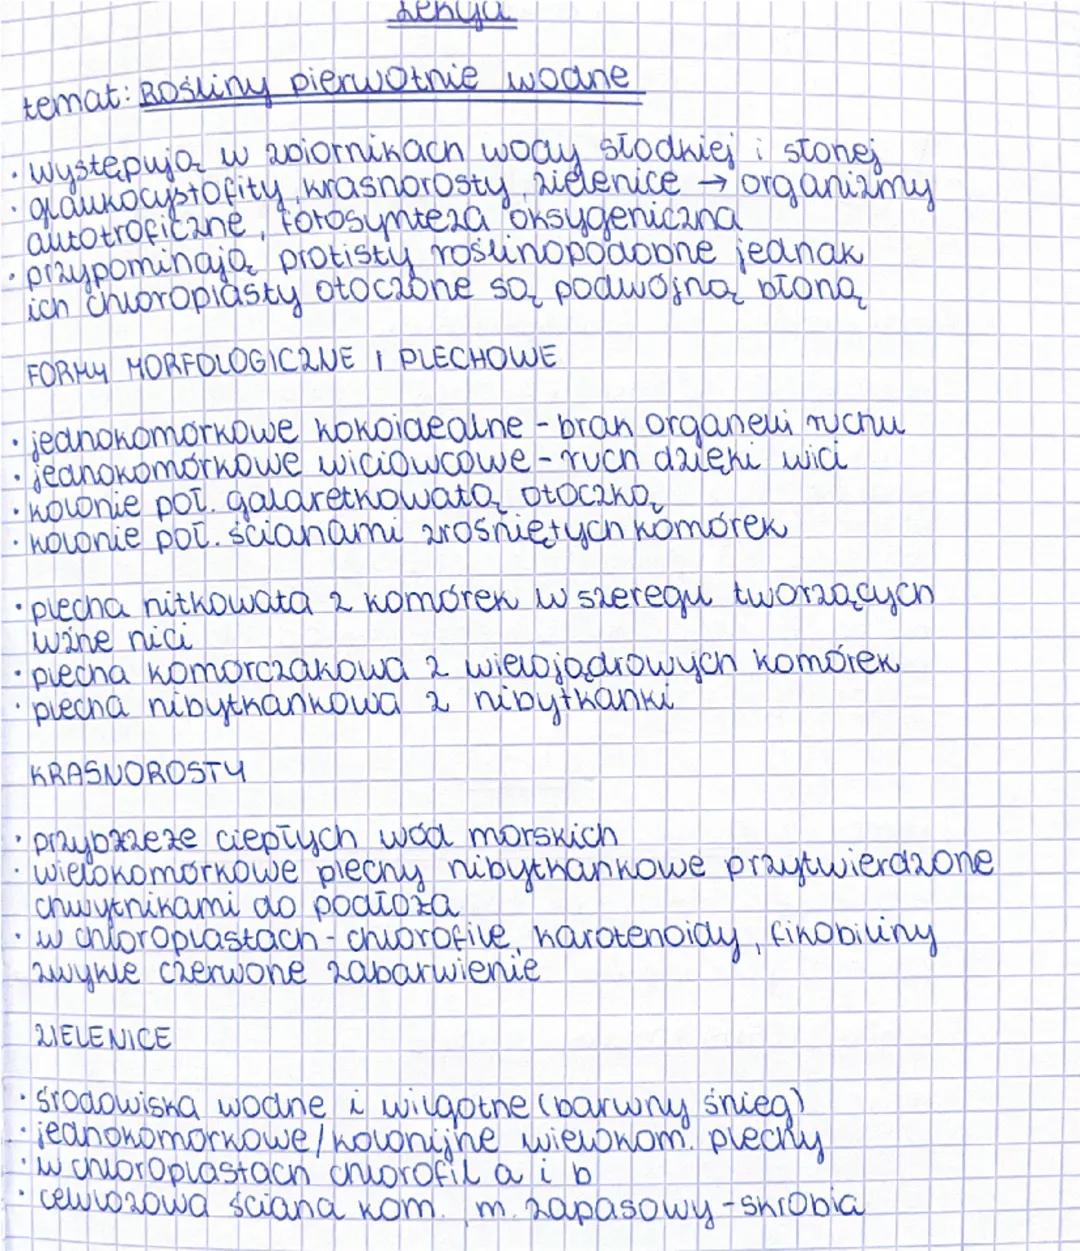 Lekcja
temat: Rośliny pierwotnie wodne
• występują w zbiornikach wody słodkiej i słonej
• glaukocystofity, krasnorosty, zielenice → organizmy
autotroficzne, fotosynteza oksygeniczna
• przypominają protisty roślinopodobne jednak
ich chloroplasty otoczone są podwójną błoną
FORMY MORFOLOGICZNE I PLECHOWE
• jednokomórkowe kokoidealne - brak organelli ruchu
• jednokomórkowe wiciowcowe - ruch dzięki wici
• kolonie poł. galaretkowatą otoczką
• kolonie poł. ścianami zrośniętych komórek
• plecha nitkowata z komórek w szeregu tworzących
wżne nici
• plecha komórczakowa z wielojądrowych komórek
• plecha nibytkankowa z nibytkanki
KRASNOROSTY
• przybrzeże ciepłych wód morskich
• wielokomórkowe plechy nibytkankowe przytwierdzone
chwytnikami do podłoża
• w chloroplastach - chlorofile, karotenoidy, fikobiliny
zwykle czerwone zabarwienie
ZIELENICE
• środowiska wodne i wilgotne (barwny śnieg)
• jednokomórkowe/kolonijne wielokom. plechy
• w chloroplastach chlorofil a i b
• celulozowa ściana kom. m. zapasowy - skrobia